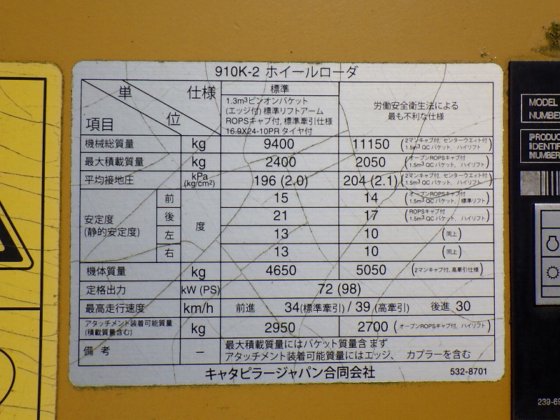 910K-2 ホイールローダ
単位 仕様 項目
標準
1.3m³ピンオンバケット
(エッジ付)標準リフトアーム
ROPSキャブ付, 標準牽引仕様
16.9X24-10PR タイヤ付
労働安全衛生法による
最も不利な仕様
機械総質量 kg 9400 11150 (2マンキャブ付, センターウエイト付 1.5m³ QC バケット, ハイリフト)
最大積載質量 kg 2400 2050 (オープンROPSキャブ付 1.5m³ QC バケット, ハイリフト)
平均接地圧 kPa (kg/cm²) 196 (2.0) 204 (2.1) (2マンキャブ付, センターウエイト付 1.5m³ QC バケット, ハイリフト)
安定度 (静的安定度) 度
前 15 14 (オープンROPSキャブ付 1.5m³ QC バケット, 標準リフト)
後 21 17 (ROPSキャブ付 1.5m³ QC バケット, ハイリフト)
左 13 10 (同上)
右 13 10 (同上)
機体質量 kg 4650 5050 (2マンキャブ付, 高牽引仕様)
定格出力 kW (PS) 72 (98)
最高走行速度 km/h 前進 34 (標準牽引) / 39 (高牽引) 後進 30
アタッチメント装着可能質量 (積載質量含む) kg 2950 2700 (オープンROPSキャブ付, ハイリフト)
備考 － 最大積載質量にはバケット質量含まず
アタッチメント装着可能質量にはエッジ、カプラーを含む
キャタピラージャパン合同会社 532-8701
MODEL
NUMBER
PRODUC
IDENTIFI
NUMBER